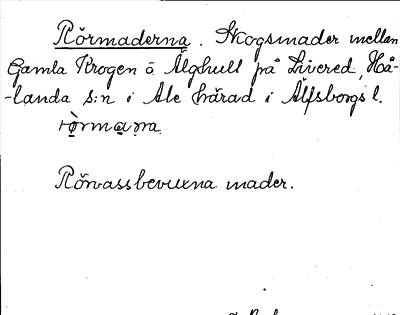 Rörmaderna. Skogsmader mellan
Gamla Krogen o Älghult på Livered, Hå-
-landa s:n i Ale härad i Älfsborgs l.
rörmara
Rörvassbevuxna mader.